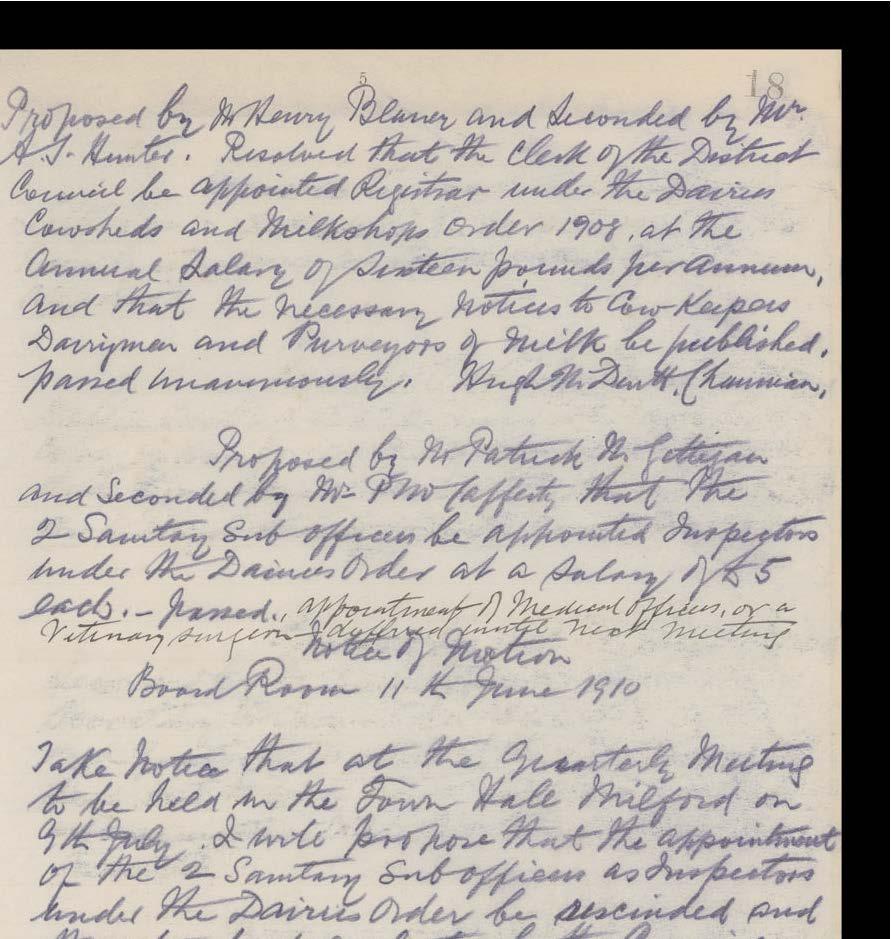 5
18
Proposed by Mr Henry Blaney and Seconded by Mr.
A.J. Hunter. Resolved that the Clerk of the District
Council be appointed Registrar under the Dairies
Cowsheds and Milkshops Order 1908, at the
Annual Salary of Sixteen pounds per Annum,
and that the necessary notices to Cow Keepers
Dairymen and Purveyors of Milk be published.
passed unanimously. Hugh McDevitt, Chairman.
Proposed by Mr Patrick McGettigan
and Seconded by Mr P McCafferty that the
2 Sanitary Sub officers be appointed Inspectors
under the Dairies Order at a Salary of £5
each. - passed., appointment of Medical Officers, or a
Vetinary surgeon deffered until next meeting
Notice of Motion
Board Room 11th June 1910
Take Notice that at the Quarterly Meeting
to be held in the Town Hall Milford on
9th July. I will propose that the appointment
of the 2 Sanitary Sub officers as Inspectors
under the Dairies Order be rescinded and